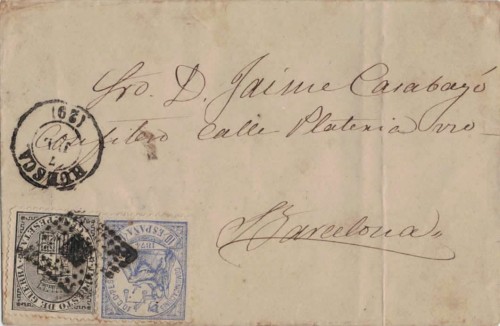 Sro. D. Jaime Casabayó
Confitero Calle Plateria nro
Barcelona
HUESCA
(29)
IMPUESTO DE GUERRA
ESPAÑA